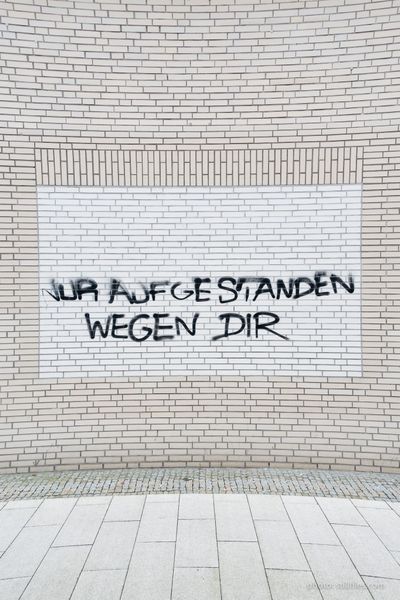 NUR AUFGESTANDEN
WEGEN DIR